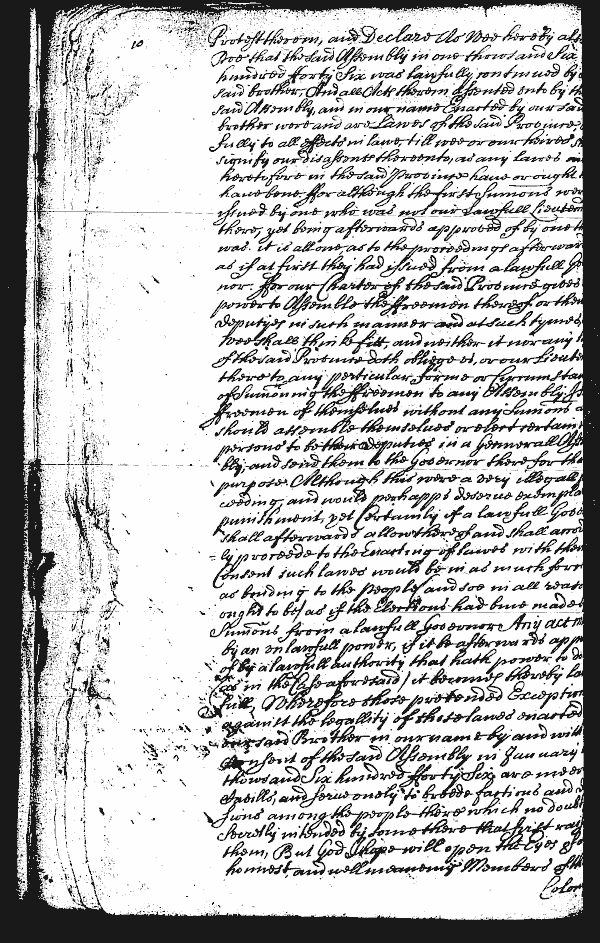 10
Protest therein, and Declare As Wee hereby als
Doe that the said Assembly in one thowsand Six
hundred fforty Six was lawfully continued by
said brother. And all Acts therein Assented unto by th
said Assembly, and in our name Enacted by our said
brother were and are Lawes of the said Province,
fully to all effects in lawe, till wee or our heires
signify our disassents thereunto, as any lawes
heretofore in the said Province have or ought
have bene. ffor although the first Sumons were
issued by one who was not our Lawfull Lieuten
there, yet being afterwards approved of by one th
was. it is all one, as to the proceedings afterwar
as if at first they had issued from a lawfull Go
nor. ffor our Charter of the said Province gives
power to Assemble the ffreemen thereof or their
deputyes in such manner and at such tymes,
Wee shall thinke fitt, and neither it nor any
of the said Province doth obliege us, or our Lieute
there to any particular forme or Circumstan
of Sumoning the ffreemen to any Assembly
ffreemen of themselves without any Sumons
should assemble themselves or elect certain
persons to be their deputies in a generall Asse
bly, and send them to the Governor there for tha
purpose. Although this were a very illegall p
ceeding, and would perhapps deserve exempla
punishment, yet Certainly if a lawfull Gove
shall afterwards allow thereof and shall accord
ly proceede to the Enacting of Lawes with their
Consent such lawes would be in as much force
as binding to the people and soe in all reaso
ought to be) as if the Elections had bine made
Sumons from a lawfull Governor Any act
by an onlawfull power, if it be afterwards app
of by a lawfull authority that hath power to do
(as in the Case aforesaid) it becomes thereby law
full, Wherefore those pretended Exception
against the legallity of those lawes enacted
our said Brother in our name by and with
Consent of the said Assembly in January
thowsand Six hundred fforty Six are meer
Cavills, and serve onely to breede factions and
sions among the people there which no doubt
Secretly intended by some there that first rais
them, But God I hope will open the Eyes of
honnest and well meaneing Members of th
Colon